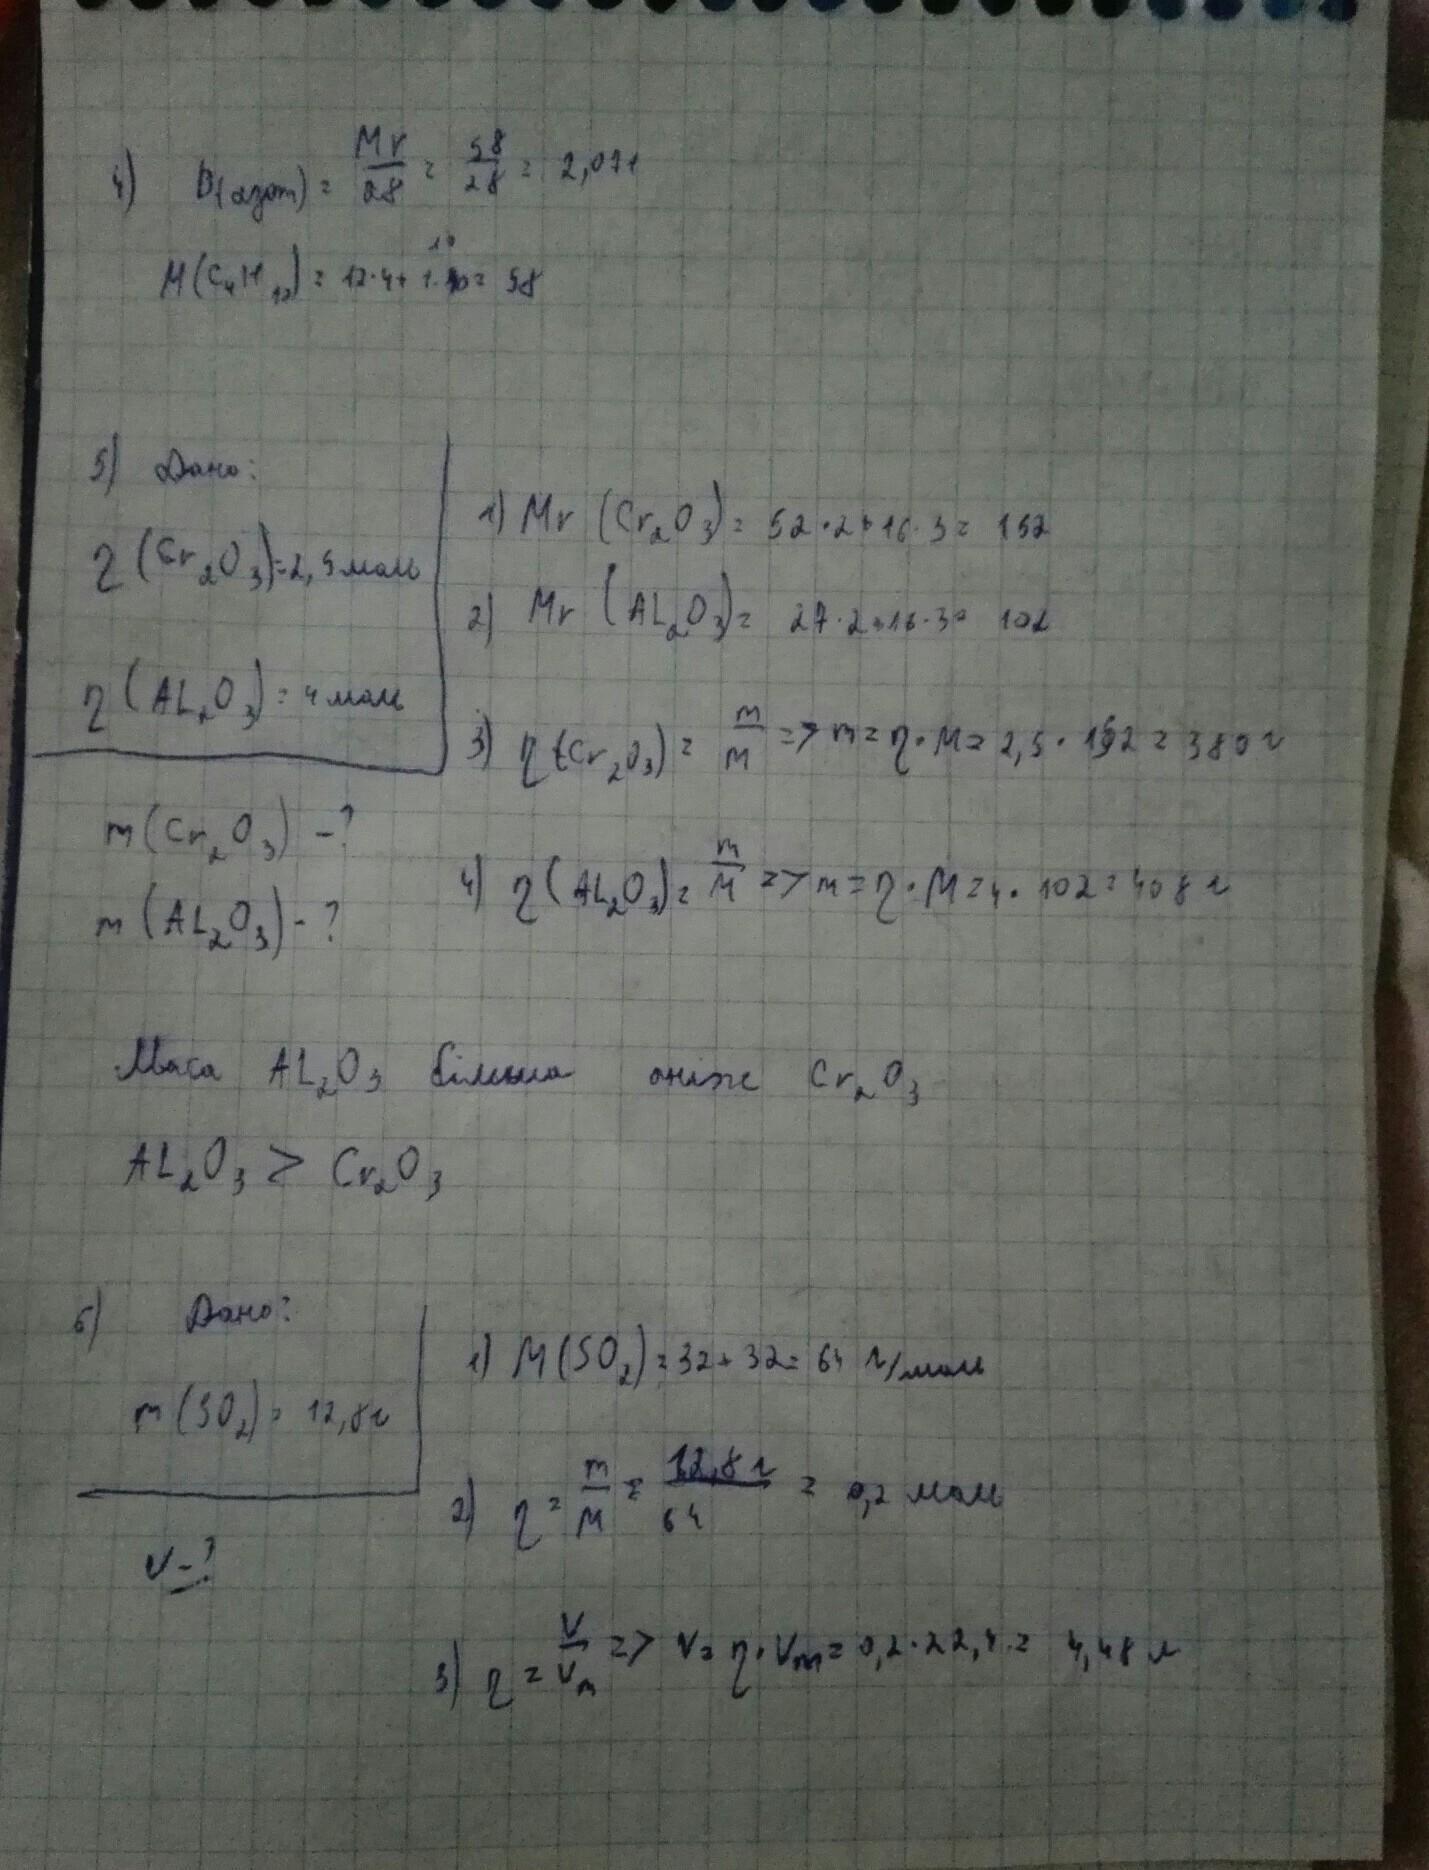 4) D(азот) = Mr/28 = 58/28 = 2,071
10
M(C4H10) = 12·4+1·10 = 58
5) Дано:
η(Cr2O3)=2,5 моль
η(AL2O3)=4 моль
m(Cr2O3) -?
m(AL2O3) -?
1) Mr (Cr2O3) = 52·2+16·3= 152
2) Mr (AL2O3)= 27·2+16·3= 102
3) η(Cr2O3) = m/M => m=η·M= 2,5·152 = 380 г
4) η(AL2O3)= m/M => m=η·M=4·102=408 г
Маса AL2O3 більша аніж Cr2O3
AL2O3 > Cr2O3
6) Дано:
m(SO2)= 12,8г
V-?
1) M(SO2)=32+32=64 г/моль
2) η = m/M = 12,8 г/64 = 0,2 моль
3) η = V/Vm => V=η·Vm=0,2·22,4= 4,48 л